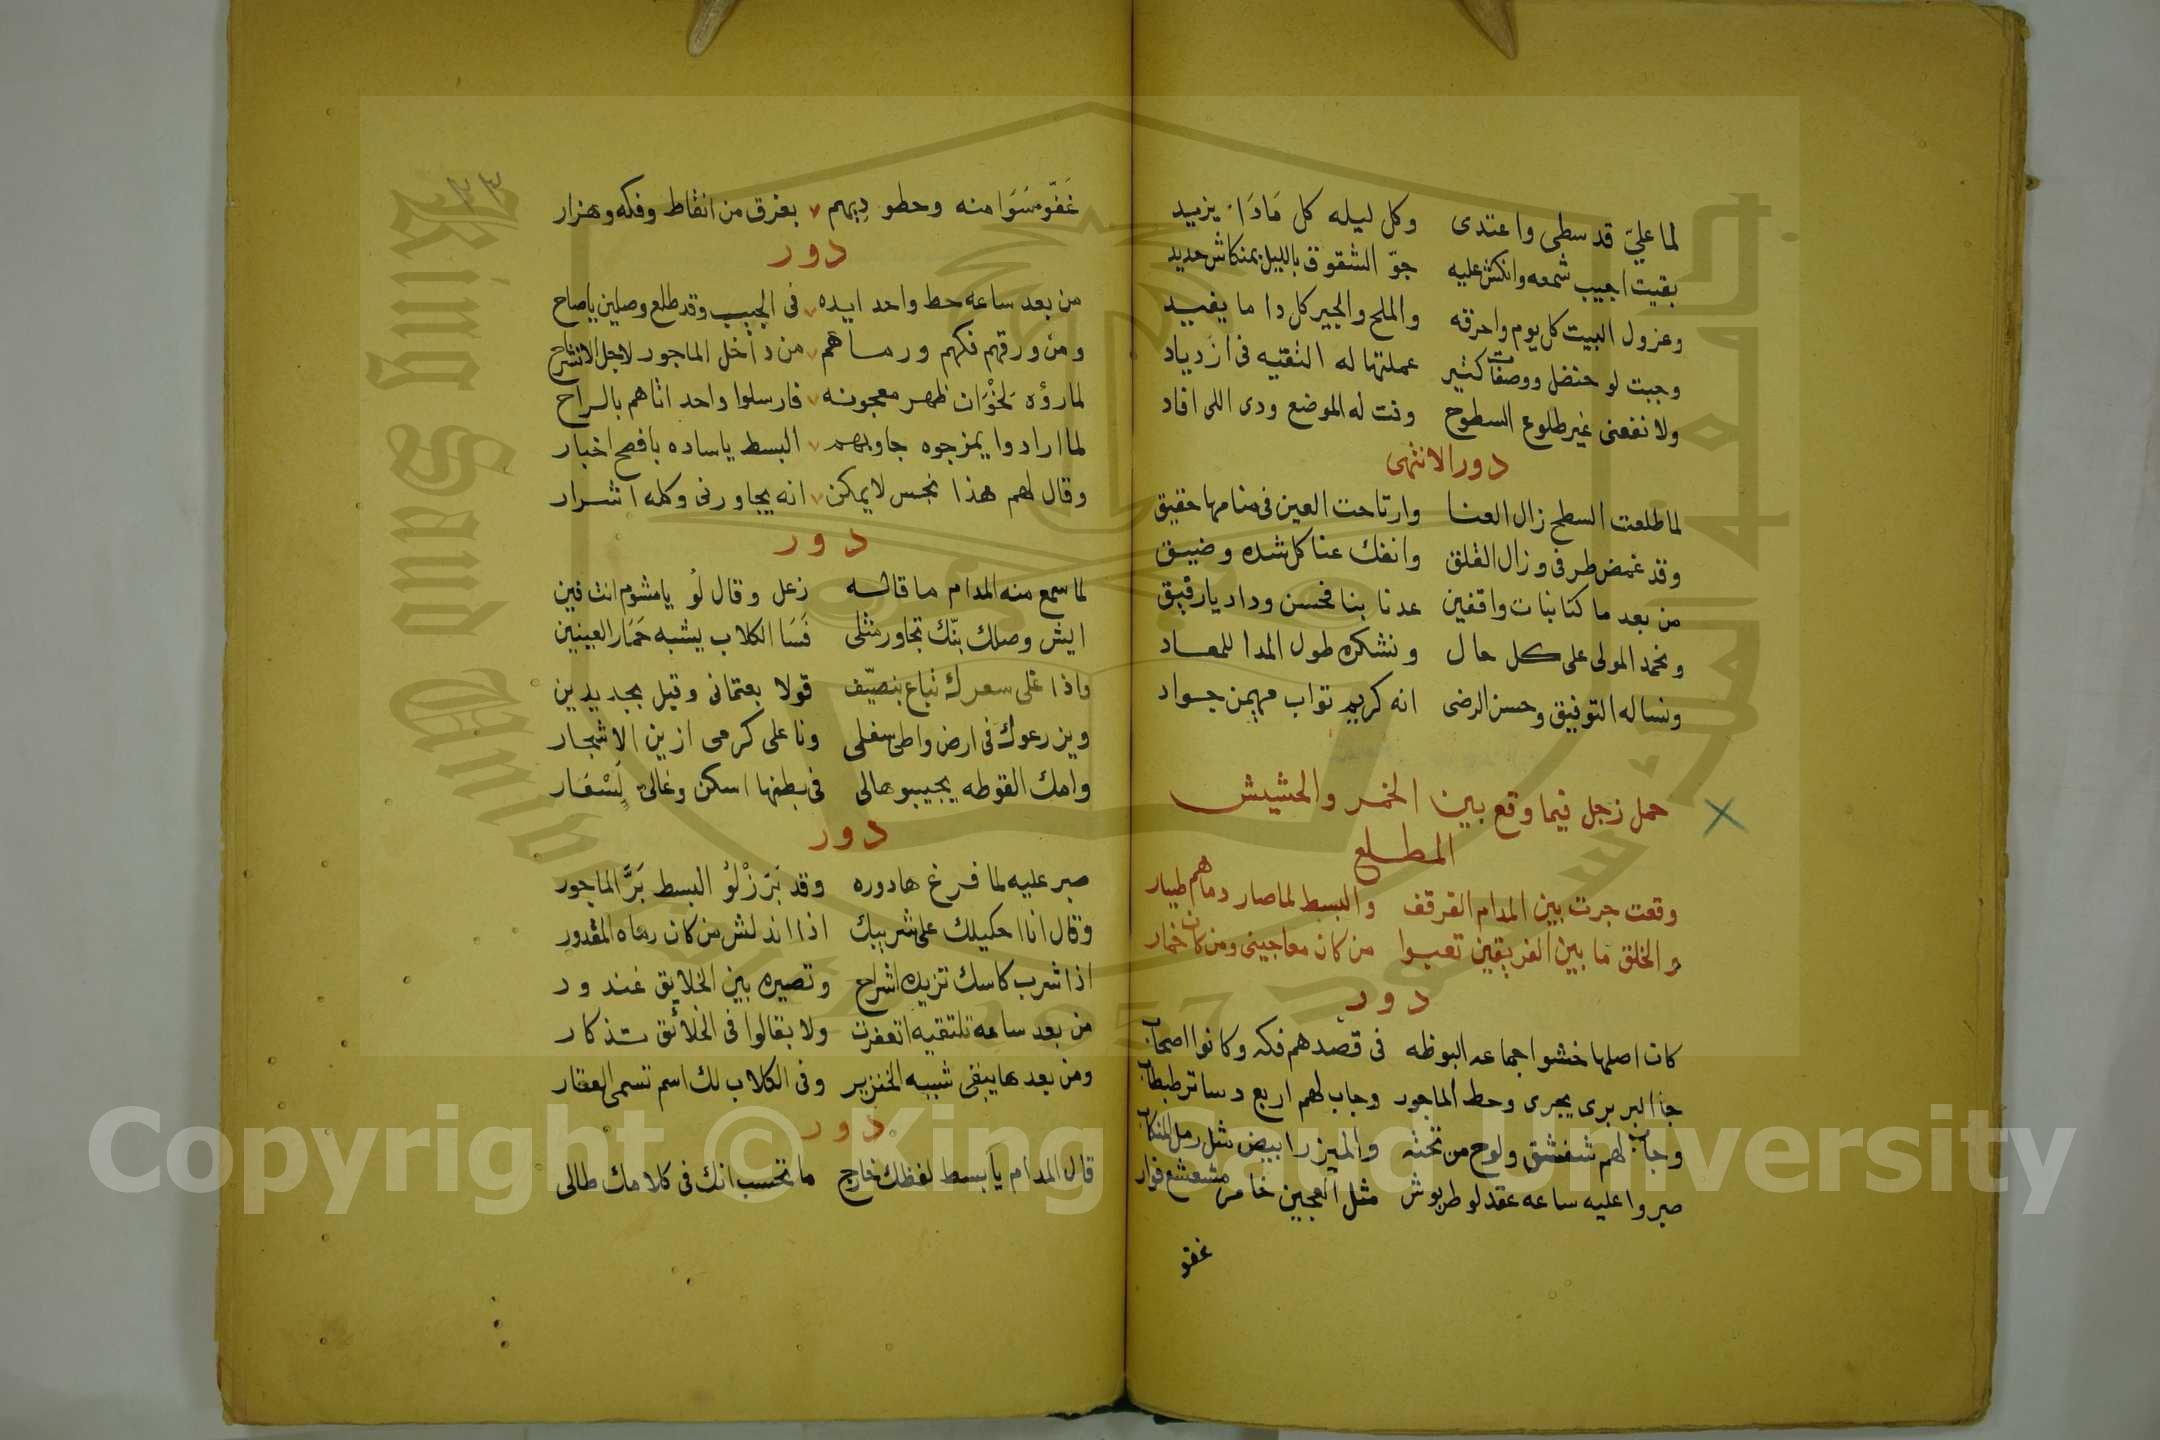 لما عليّ قد سطى واعتدى وكل ليله كل مَادَا يزيد
بقيت اجيب شمعه وانكش عليه جوّ الشقوق بالليل بمنكاش حديد
وعزول البيت كل يوم واحرقه والملح والجير كل دا ما يفيد
وجبت لو حنضل ووصفات كتير عملتها له التقيه فى ازدياد
ولا نفعنى غير طلوع السطوح وفت له الموضع ودى اللى افاد
دور الانتهى
لما طلعت السطح زال العنا وارتاحت العين فى منامها حقيق
وقد غمض طرفى وزال القلق وانفك عنا كل شده وضيق
من بعد ما كنا نبات واقفين عدنا بنا فحسن وداد يا رفيق
ونحمد المولى على كل حال ونشكره طول المدا للمعاد
ونساله التوفيق وحسن الرضى انه كريم تواب مهيمن جواد
حمل زجل فيما وقع بين الخمر والحشيش
المطلع
وقعت جرت بين المدام القرقف والبسط لما صار دماهم طيار
والخلق ما بين الفريقين تعبوا من كان معاجينى ومن كان خمار
دور
كان اصلها خشوا جماعه البوظه فى قصدهم فكه وكانوا اصحاب
جا البربرى يجرى وحط الماجور وجاب لهم اربع دساتر طبطاب
وجاب لهم شفشق ولوح من تحته والميزر ابيض مثل رمل المنكاب
صبروا عليه ساعه عقد لو طربوش مثل العجين خامر مشعشع فوار
غفو
٢٣
غَفّو سَوَا منه وحطو ديهم بعزق من انقاط وفكه وهزار
دور
من بعد ساعه حط واحد ايده فى الجيب وقد طلع وصلين ياصاح
ومن ورقهم فكهم ورماهم من داخل الماجور لاجل الانشراح
لما رؤه لخوان ظهر معجونه فارسلوا واحد اتاهم بالراح
لما ارادوا يمزجوه جاوبهم البسط ياساده بافصح اخبار
وقال لهم هذا نجس لا يمكن انه يجاورنى وكله اشرار
دور
لما سمع منه المدام ما قاله زعل وقال لو يا مشوم انت فين
ايش وصلك بنّك تجاور مثلى فَسَا الكلاب يشبه حَمَار العينين
واذا غلى سعرك تباع بنصيّف قولا بعتمانى وقيل بجديدين
ويزرعوك فى ارض واطى سفلى ونا على كرمى ازين الاشجار
وامك القوطه يجيبو هالى فى بطنها اسكن وغالى لَسْعَار
دور
صبر عليه لما فرغ ها دوره وقد نبرز لو البسط بَرَّ الماجور
وقال انا احكيلك على شريبك اذا اندلش من كان رماه المقدور
اذا شرب كاسك تزيده اشراح وتصيره بين الخلايق غندور
من بعد ساعه تلتقيه اتعفرت ولا بقالوا فى الخلائق تذكار
ومن بعدها يبقى شبيه الخنزير وفى الكلاب لك اسم تسمى العقار
دور
قال المدام يا بسط لفظك خارج ما تحتسب انك فى كلامك طالى
Copyright © King Saud University
King Saud University
جامعة الملك سعود
1957